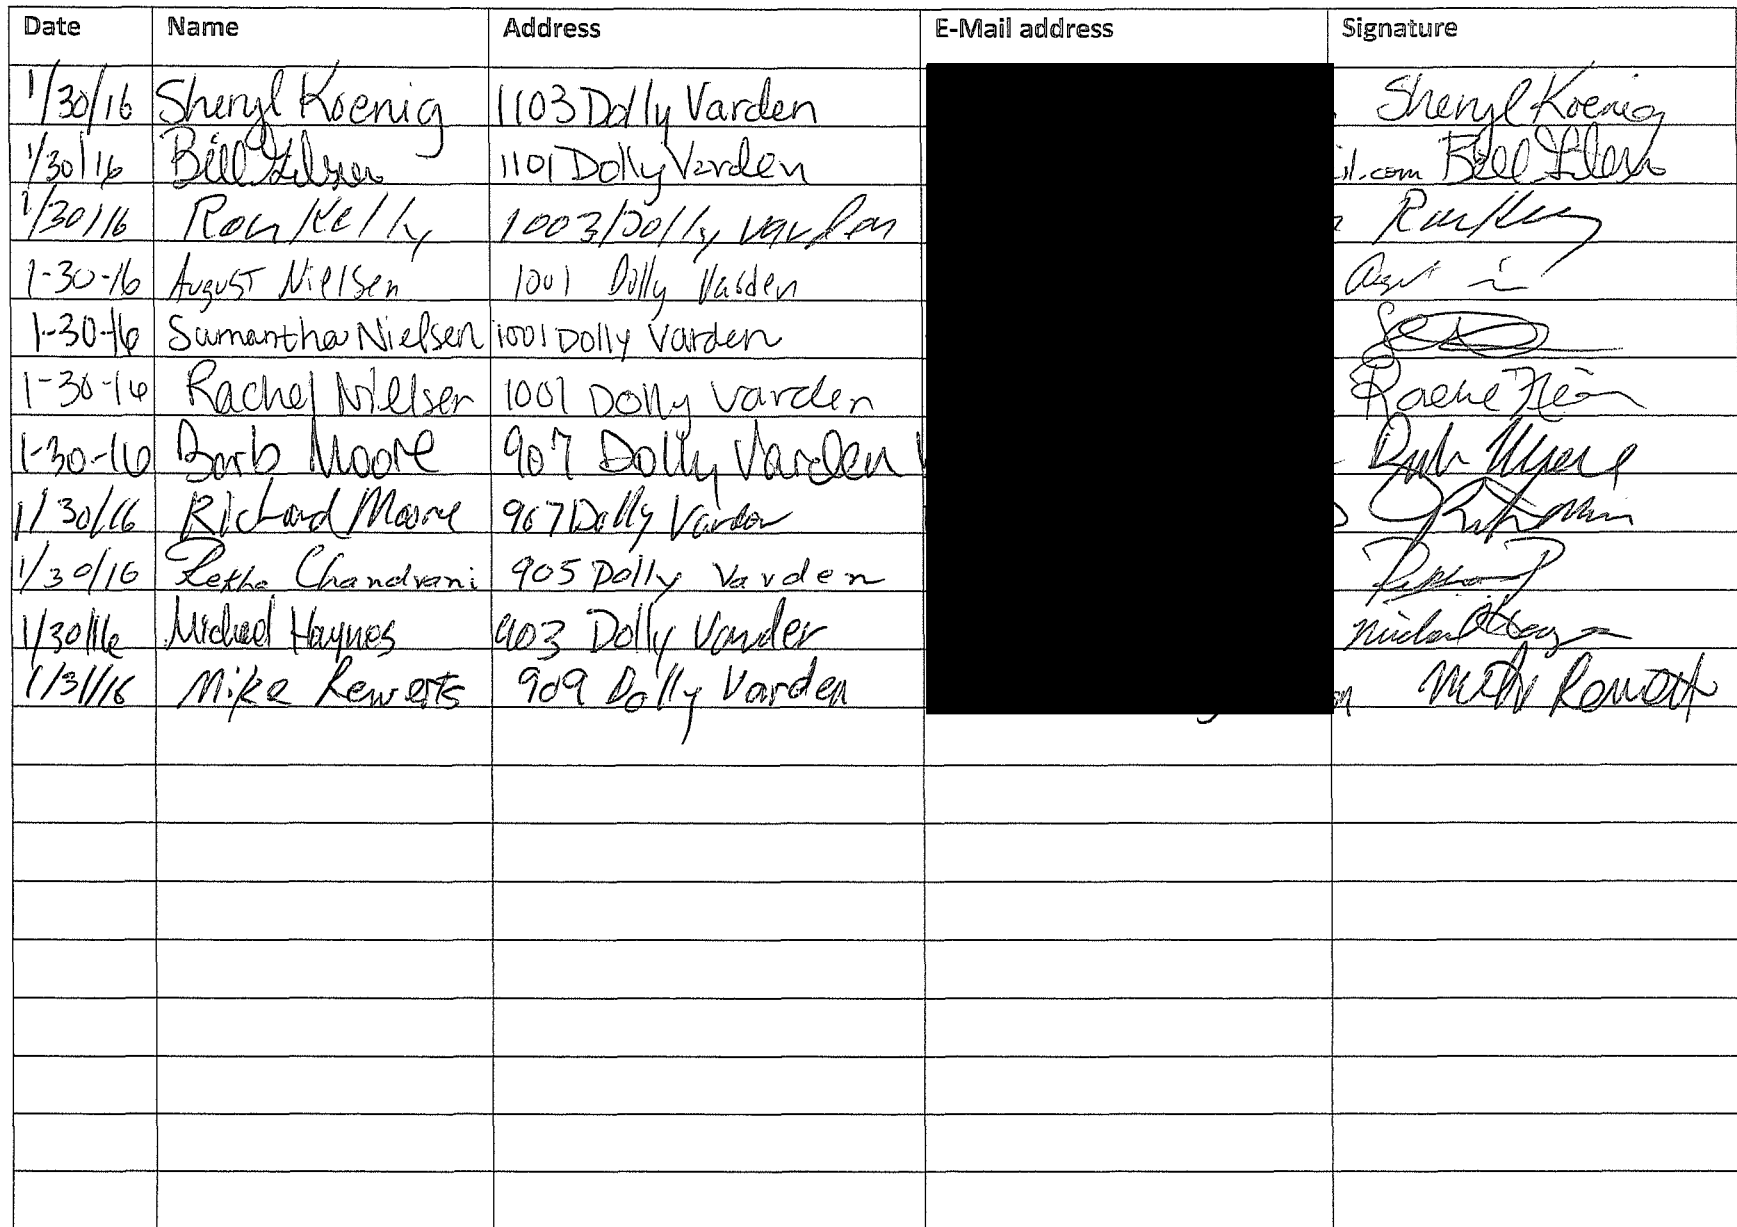 Date Name Address E-Mail address Signature
1/30/16 Sheryl Koenig 1103 Dolly Varden Sheryl Koenig
1/30/16 Bill 1101 Dolly Varden il.com Bill
1/30/16 Ron Kelly 1003 Dolly Varden
1-30-16 August Nielsen 1001 Dolly Varden
1-30-16 Samantha Nielsen 1001 Dolly Varden
1-30-16 Rachel Nielsen 1001 Dolly Varden
1-30-16 Barb Moore 907 Dolly Varden
1/30/16 Richard Moore 907 Dolly Varden
1/30/16 Chandvani 905 Dolly Varden
1/30/16 Michael Haynes 903 Dolly Varden
1/31/16 Mike Rewerts 909 Dolly Varden